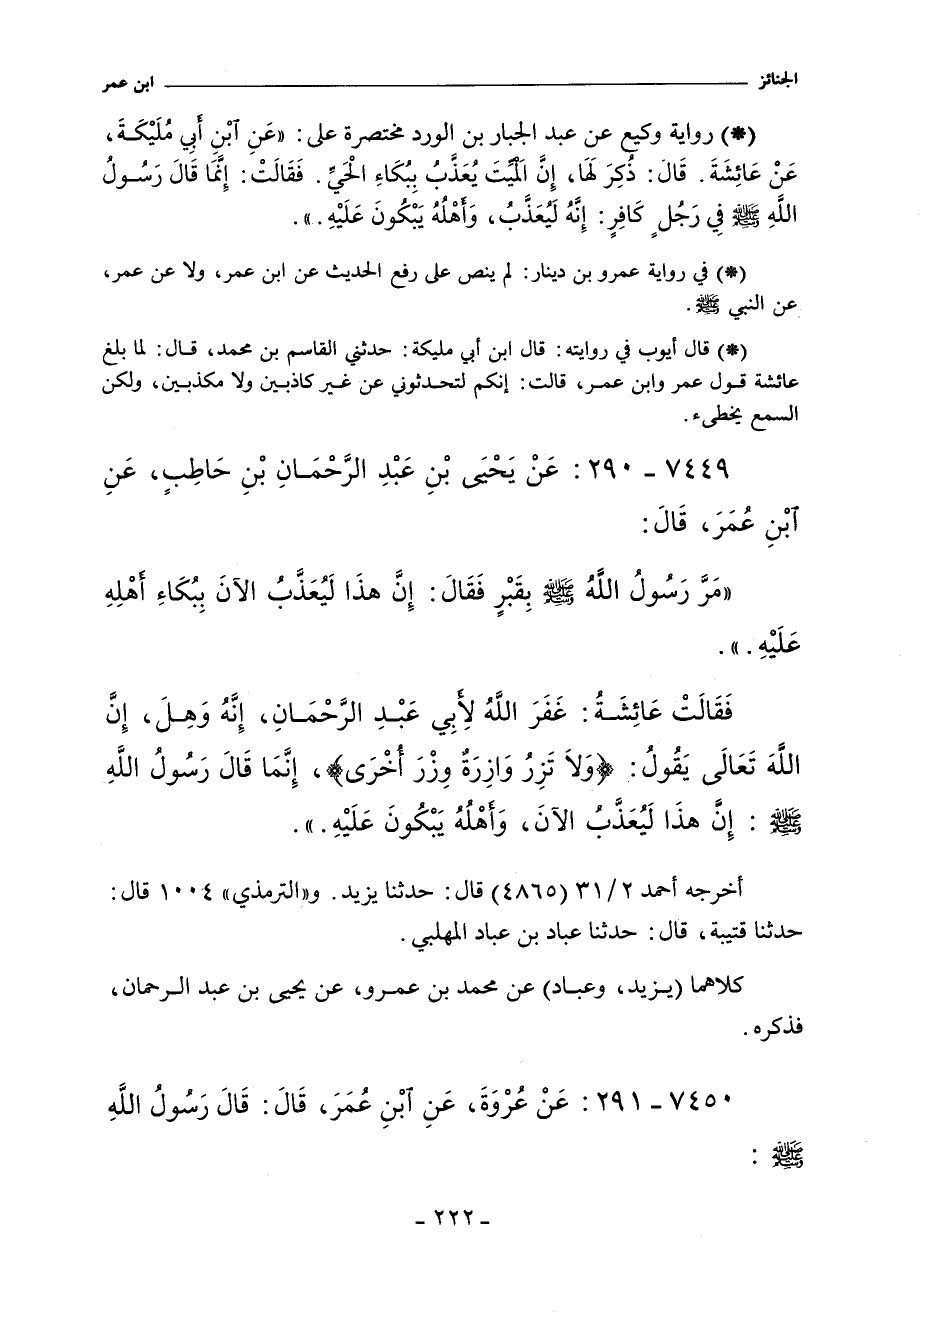 الجنائز ــــــــ ابن عمر
(*) رواية وكيع عن عبد الجبار بن الورد مختصرة على: «عَنِ آبْنِ أَبِي مُلَيْكَةَ،
عَنْ عَائِشَةَ. قَالَ: ذُكِرَ لَهَا، إِنَّ الْمَيِّتَ يُعَذَّبُ بِبُكَاءِ الْحَيِّ. فَقَالَتْ: إِنَّمَا قَالَ رَسُولُ
اللَّهِ ﷺ فِي رَجُلٍ كَافِرٍ: إِنَّهُ لَيُعَذَّبُ، وَأَهْلُهُ يَبْكُونَ عَلَيْهِ.».
(*) في رواية عمرو بن دينار: لم ينص على رفع الحديث عن ابن عمر، ولا عن عمر،
عن النبي ﷺ.
(*) قال أيوب في روايته: قال ابن أبي مليكة: حدثني القاسم بن محمد، قال: لما بلغ
عائشة قول عمر وابن عمر، قالت: إنكم لتحدثوني عن غير كاذبين ولا مكذبين، ولكن
السمع يخطىء.
٧٤٤٩ - ٢٩٠: عَنْ يَحْيَى بْنِ عَبْدِ الرَّحْمَانِ بْنِ حَاطِبٍ، عَنِ
آبْنِ عُمَرَ، قَالَ:
«مَرَّ رَسُولُ اللَّهُ ﷺ بِقَبْرٍ فَقَالَ: إِنَّ هذَا لَيُعَذَّبُ الآنَ بِبُكَاءِ أَهْلِهِ
عَلَيْهِ.».
فَقَالَتْ عَائِشَةُ: غَفَرَ اللَّهُ لِأَبِي عَبْدِ الرَّحْمَانِ، إِنَّهُ وَهِلَ، إِنَّ
اللَّهَ تَعَالَى يَقُولُ: ﴿وَلاَ تَزِرُ وَازِرَةٌ وِزْرَ أُخْرَى﴾، إِنَّمَا قَالَ رَسُولُ اللَّهِ
ﷺ: إِنَّ هذَا لَيُعَذَّبُ الآنَ، وَأَهْلُهُ يَبْكُونَ عَلَيْهِ.».
أخرجه أحمد ٣١/٢ (٤٨٦٥) قال: حدثنا يزيد. و«الترمذي» ١٠٠٤ قال:
حدثنا قتيبة، قال: حدثنا عباد بن عباد المهلبي.
كلاهما (يزيد، وعباد) عن محمد بن عمرو، عن يحيى بن عبد الرحمان،
فذكره.
٧٤٥٠ - ٢٩١: عَنْ عُرْوَةَ، عَنِ آبْنِ عُمَرَ، قَالَ: قَالَ رَسُولُ اللَّهِ
ﷺ:
- ٢٢٢ -